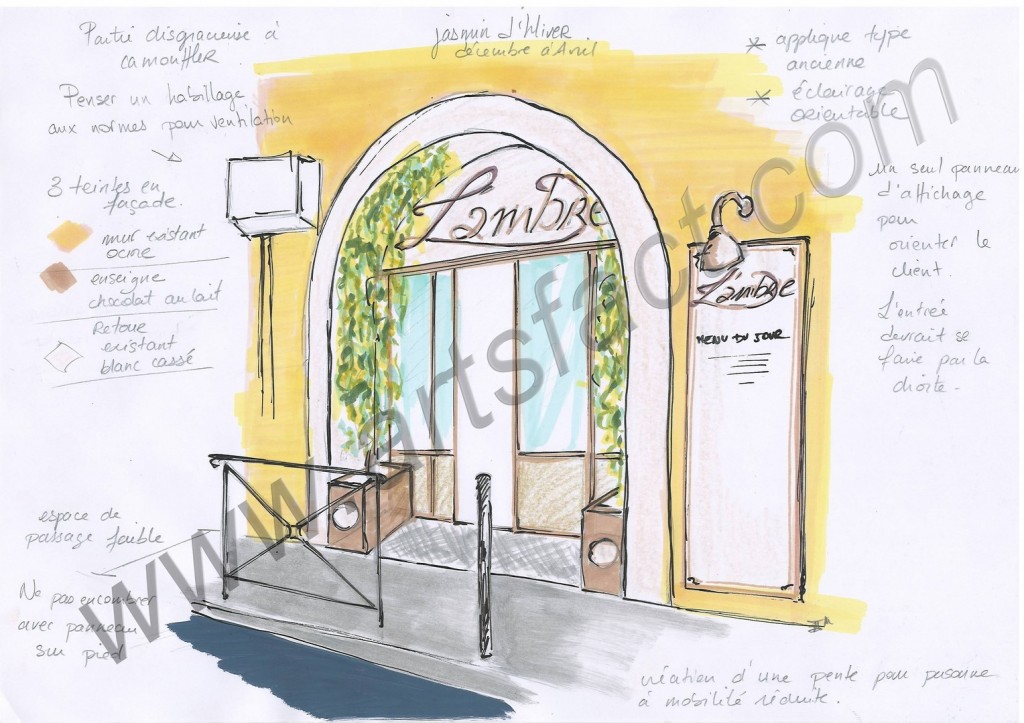 Partie disgracieuse à
camouffler
Penser un habillage
aux normes pour ventilation
3 teintes en
façade.
mur existant
ocre
enseigne
chocolat au lait
Retour
existant
blanc cassé
espace de
passage faible
Ne pas encombrer
avec panneau
sur pied
jasmin d'Hiver
décembre à Avril
L'ambre
* applique type
ancienne
* éclairage
orientable
un seul panneau
d'affichage
pour
orienter le
client.
L'entrée
devrait se
faire par la
droite.
L'ambre
MENU DU JOUR
création d'une pente pour personne
à mobilité réduite.
www.artsfact.com